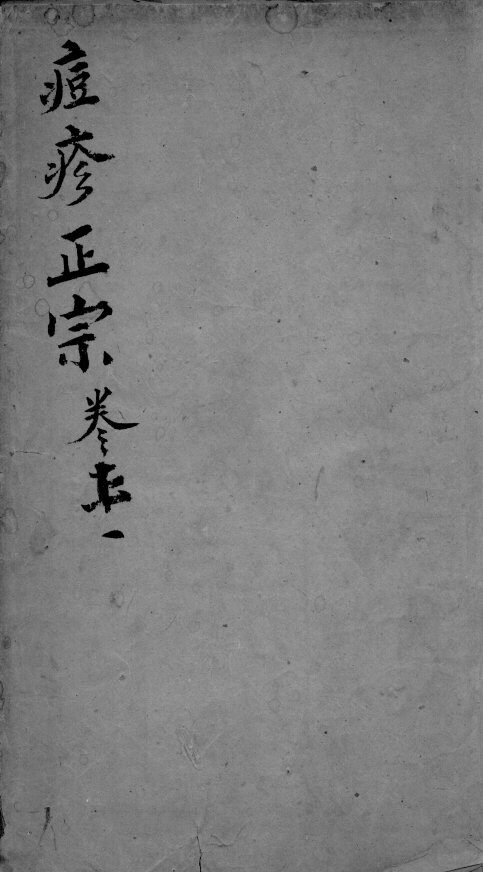 痘疹正宗卷一